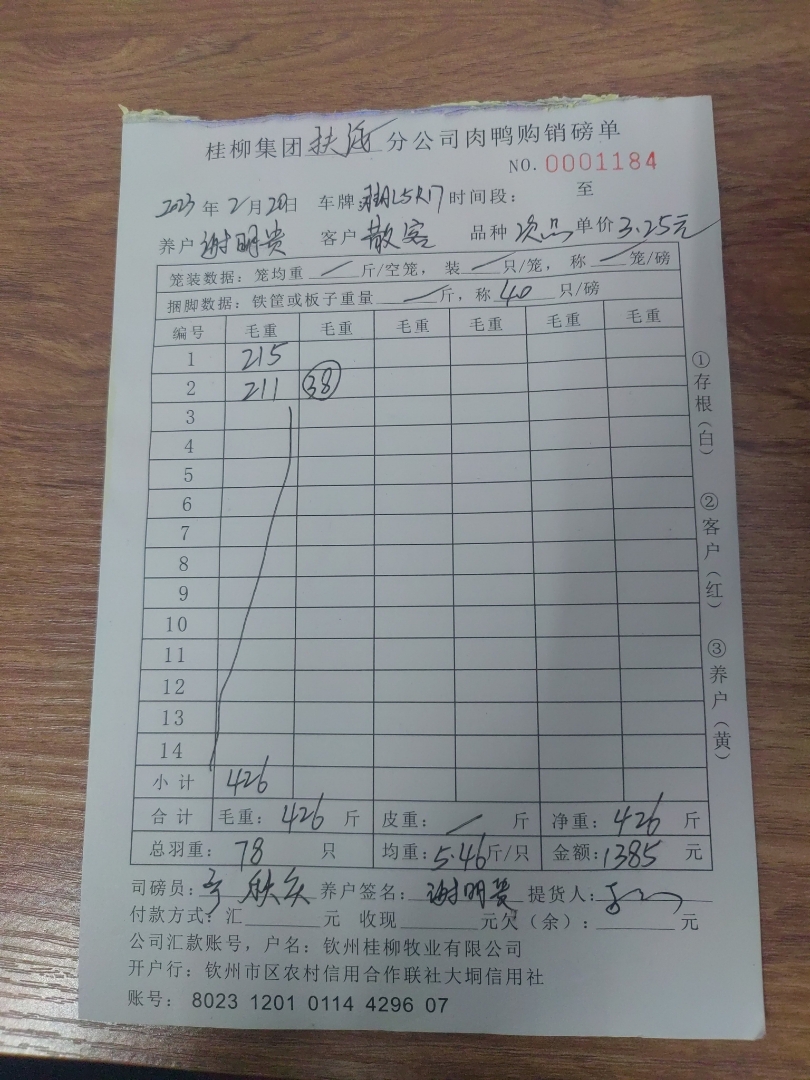 桂柳集团扶海分公司肉鸭购销磅单
NO. 0001184
2023年2月20日 车牌: 时间段: 至
养户 谢明贵 客户 散客 品种 次品 单价 3.25元
笼装数据: 笼均重 / 斤/空笼, 装 / 只/笼, 称 / 笼/磅
捆脚数据: 铁筐或板子重量 / 斤, 称 40 只/磅
编号 毛重 毛重 毛重 毛重 毛重 毛重
1 215
2 211 38
3
4
5
6
7
8
9
10
11
12
13
14
小计 426
合计 毛重: 426 斤 皮重: / 斤 净重: 426 斤
总羽重: 78 只 均重: 5.46斤/只 金额: 1385 元
司磅员: 养户签名: 谢明贵 提货人:
付款方式: 汇 元 收现 元欠(余): 元
公司汇款账号, 户名: 钦州桂柳牧业有限公司
开户行: 钦州市区农村信用合作联社大垌信用社
账号: 8023 1201 0114 4296 07
①存根(白)
②客户(红)
③养户(黄)